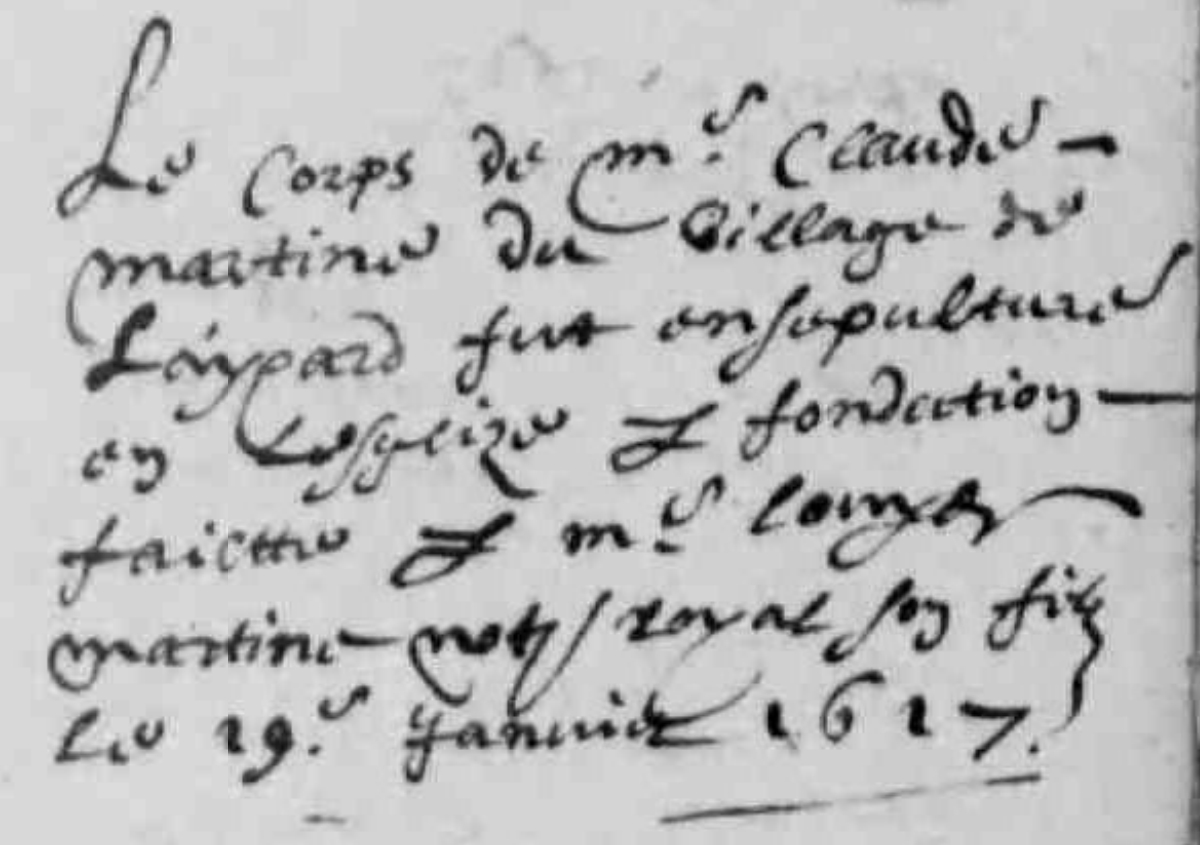 Le Corps de m.e Claude -
martine du Village de
Laÿpard fut ensepulture
en Lesglize & fondation -
faictte & m.e louys
martine not/ royal son filz
Le 19.e Janvier 1617.